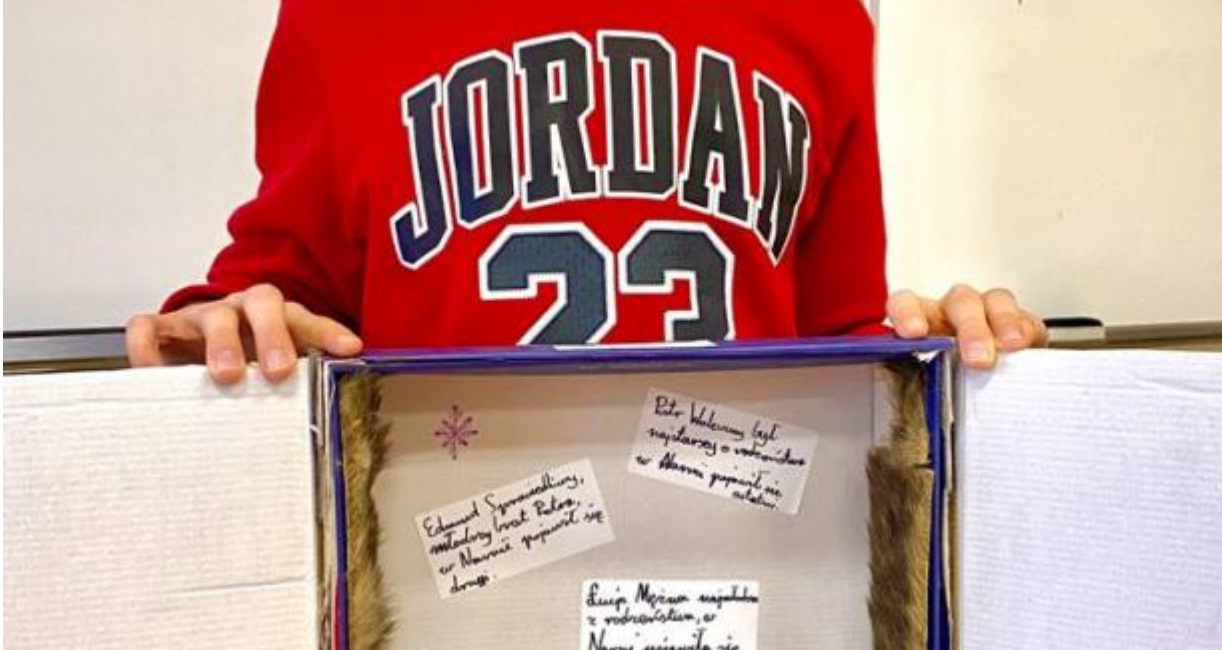 JORDAN
23
Piotr Wielki był
najstarszy z rodzeństwa
w Narnii pojawił się
ostatni.
Edmund Sprawiedliwy,
młodszy brat Piotra,
w Narnii pojawił się
drugi.
Łucja Mężna najmłodsza
z rodzeństwa, w
Narnii pojawiła się